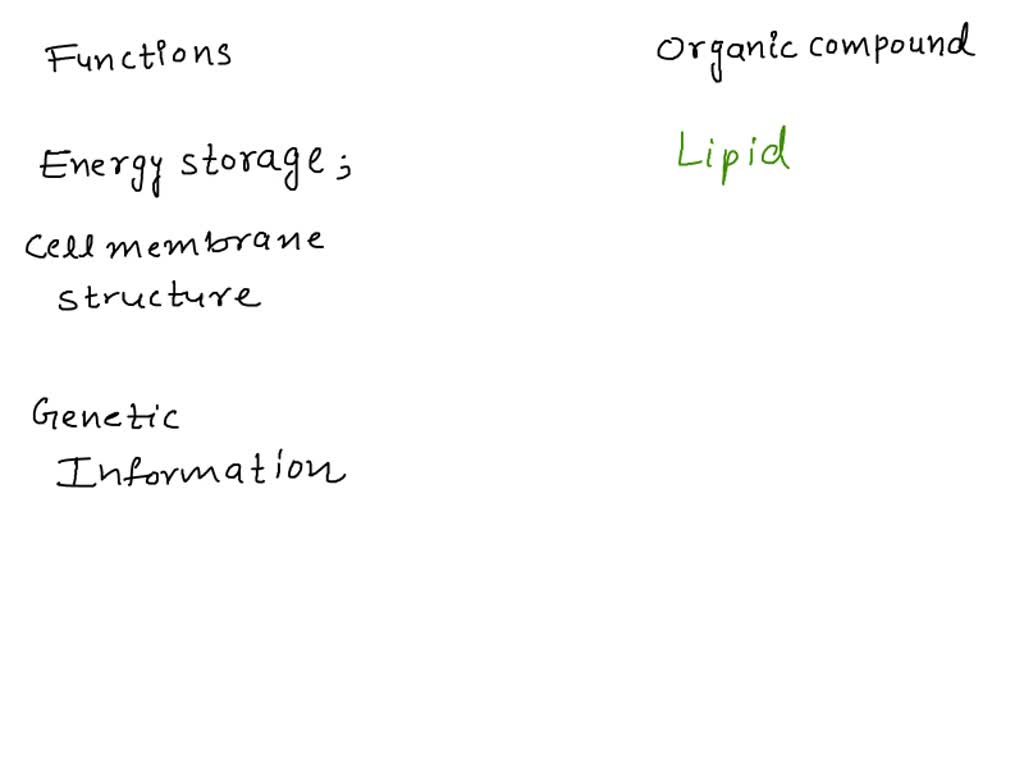 Functions
Organic compound
Energy storage;
Lipid
Cell membrane
structure
Genetic
Information